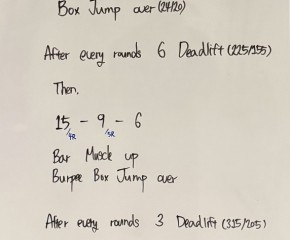 Box Jump over (24/20)
After every rounds 6 Deadlift (225/155)
Then,
15 - 9 - 6
Bar Muscle up
Burpee Box Jump over
After every rounds 3 Deadlift (315/205)